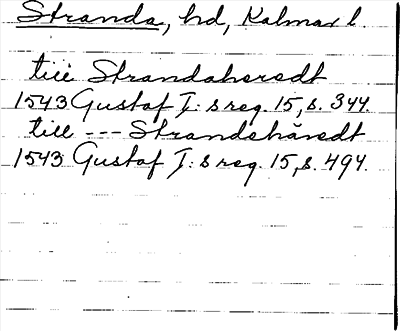 Stranda, hd, Kalmar l.
till Strandaheredt
1543 Gustaf I: s reg. 15, s. 344.
till --- Strandehäredt
1543 Gustaf I: s reg. 15, s. 494.